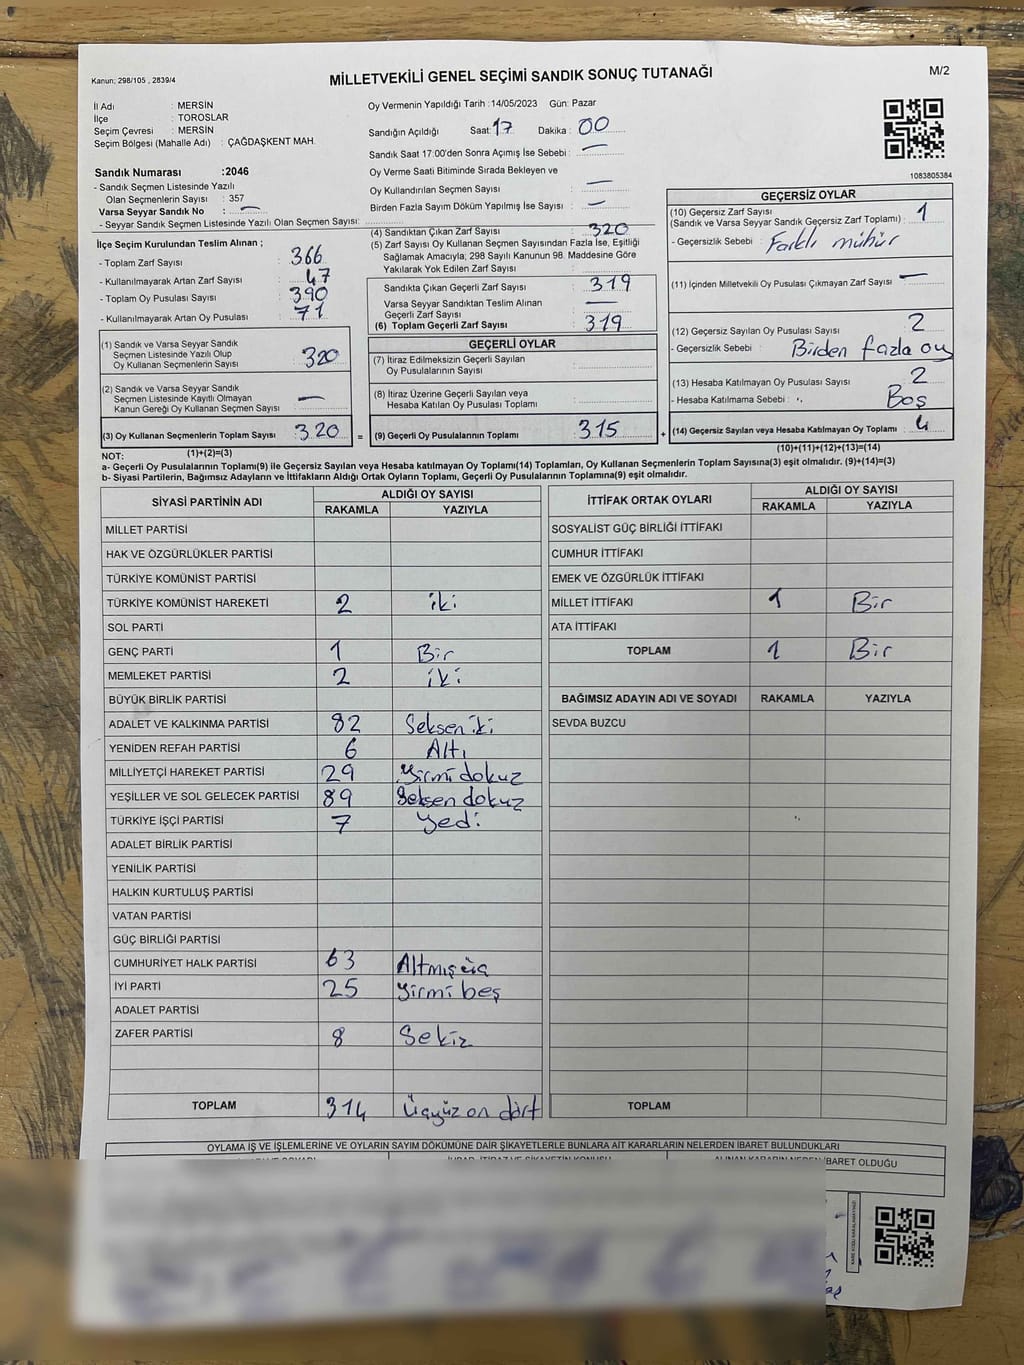 Kanun: 298/105 , 2839/4
MİLLETVEKİLİ GENEL SEÇİMİ SANDIK SONUÇ TUTANAĞI
M/2
İl Adı : MERSİN
İlçe : TOROSLAR
Seçim Çevresi : MERSİN
Seçim Bölgesi (Mahalle Adı) : ÇAĞDAŞKENT MAH.
Sandık Numarası :2046
- Sandık Seçmen Listesinde Yazılı
Olan Seçmenlerin Sayısı : 357
Varsa Seyyar Sandık No : —
- Seyyar Sandık Seçmen Listesinde Yazılı Olan Seçmen Sayısı:
Oy Vermenin Yapıldığı Tarih :14/05/2023 Gün: Pazar
Sandığın Açıldığı Saat: 17 Dakika : 00
Sandık Saat 17:00'den Sonra Açımış İse Sebebi : —
Oy Verme Saati Bitiminde Sırada Bekleyen ve
Oy Kullandırılan Seçmen Sayısı : —
Birden Fazla Sayım Döküm Yapılmış İse Sayısı : —
1083805384
İlçe Seçim Kurulundan Teslim Alınan ;
- Toplam Zarf Sayısı : 366
- Kullanılmayarak Artan Zarf Sayısı : 47
- Toplam Oy Pusulası Sayısı : 390
- Kullanılmayarak Artan Oy Pusulası : 71
(1) Sandık ve Varsa Seyyar Sandık
Seçmen Listesinde Yazılı Olup
Oy Kullanan Seçmenlerin Sayısı : 320
(2) Sandık ve Varsa Seyyar Sandık
Seçmen Listesinde Kayıtlı Olmayan
Kanun Gereği Oy Kullanan Seçmen Sayısı : —
(3) Oy Kullanan Seçmenlerin Toplam Sayısı : 320
(4) Sandıktan Çıkan Zarf Sayısı : 320
(5) Zarf Sayısı Oy Kullanan Seçmen Sayısından Fazla İse, Eşitliği
Sağlamak Amacıyla; 298 Sayılı Kanunun 98. Maddesine Göre
Yakılarak Yok Edilen Zarf Sayısı :
Sandıkta Çıkan Geçerli Zarf Sayısı : 319
Varsa Seyyar Sandıktan Teslim Alınan
Geçerli Zarf Sayısı : —
(6) Toplam Geçerli Zarf Sayısı : 319
GEÇERLİ OYLAR
(7) İtiraz Edilmeksizin Geçerli Sayılan
Oy Pusulalarının Sayısı :
(8) İtiraz Üzerine Geçerli Sayılan veya
Hesaba Katılan Oy Pusulası Toplamı :
= (9) Geçerli Oy Pusulalarının Toplamı : 315
GEÇERSİZ OYLAR
(10) Geçersiz Zarf Sayısı
(Sandık ve Varsa Seyyar Sandık Geçersiz Zarf Toplamı) : 1
- Geçersizlik Sebebi : Farklı mühür
(11) İçinden Milletvekili Oy Pusulası Çıkmayan Zarf Sayısı : —
(12) Geçersiz Sayılan Oy Pusulası Sayısı : 2
- Geçersizlik Sebebi : Birden fazla oy
(13) Hesaba Katılmayan Oy Pusulası Sayısı : 2
- Hesaba Katılmama Sebebi : Boş
+ (14) Geçersiz Sayılan veya Hesaba Katılmayan Oy Toplamı : 4
NOT: (1)+(2)=(3)
(10)+(11)+(12)+(13)=(14)
a- Geçerli Oy Pusulalarının Toplamı(9) ile Geçersiz Sayılan veya Hesaba katılmayan Oy Toplamı(14) Toplamları, Oy Kullanan Seçmenlerin Toplam Sayısına(3) eşit olmalıdır. (9)+(14)=(3)
b- Siyasi Partilerin, Bağımsız Adayların ve İttifakların Aldığı Ortak Oyların Toplamı, Geçerli Oy Pusulalarının Toplamına(9) eşit olmalıdır.
SİYASİ PARTİNİN ADI
ALDIĞI OY SAYISI
RAKAMLA YAZIYLA
MİLLET PARTİSİ
HAK VE ÖZGÜRLÜKLER PARTİSİ
TÜRKİYE KOMÜNİST PARTİSİ
TÜRKİYE KOMÜNİST HAREKETİ 2 iki
SOL PARTİ
GENÇ PARTİ 1 Bir
MEMLEKET PARTİSİ 2 iki
BÜYÜK BİRLİK PARTİSİ
ADALET VE KALKINMA PARTİSİ 82 Seksen iki
YENİDEN REFAH PARTİSİ 6 Altı
MİLLİYETÇİ HAREKET PARTİSİ 29 Yirmi dokuz
YEŞİLLER VE SOL GELECEK PARTİSİ 89 Seksen dokuz
TÜRKİYE İŞÇİ PARTİSİ 7 Yedi
ADALET BİRLİK PARTİSİ
YENİLİK PARTİSİ
HALKIN KURTULUŞ PARTİSİ
VATAN PARTİSİ
GÜÇ BİRLİĞİ PARTİSİ
CUMHURİYET HALK PARTİSİ 63 Altmış üç
İYİ PARTİ 25 Yirmi beş
ADALET PARTİSİ
ZAFER PARTİSİ 8 Sekiz
TOPLAM 314 Üçyüz on dört
İTTİFAK ORTAK OYLARI
ALDIĞI OY SAYISI
RAKAMLA YAZIYLA
SOSYALİST GÜÇ BİRLİĞİ İTTİFAKI
CUMHUR İTTİFAKI
EMEK VE ÖZGÜRLÜK İTTİFAKI
MİLLET İTTİFAKI 1 Bir
ATA İTTİFAKI
TOPLAM 1 Bir
BAĞIMSIZ ADAYIN ADI VE SOYADI RAKAMLA YAZIYLA
SEVDA BUZCU
TOPLAM
OYLAMA İŞ VE İŞLEMLERİNE VE OYLARIN SAYIM DÖKÜMÜNE DAİR ŞİKAYETLERLE BUNLARA AİT KARARLARIN NELERDEN İBARET BULUNDUKLARI
ALINAN KARARIN NEDEN İBARET OLDUĞU